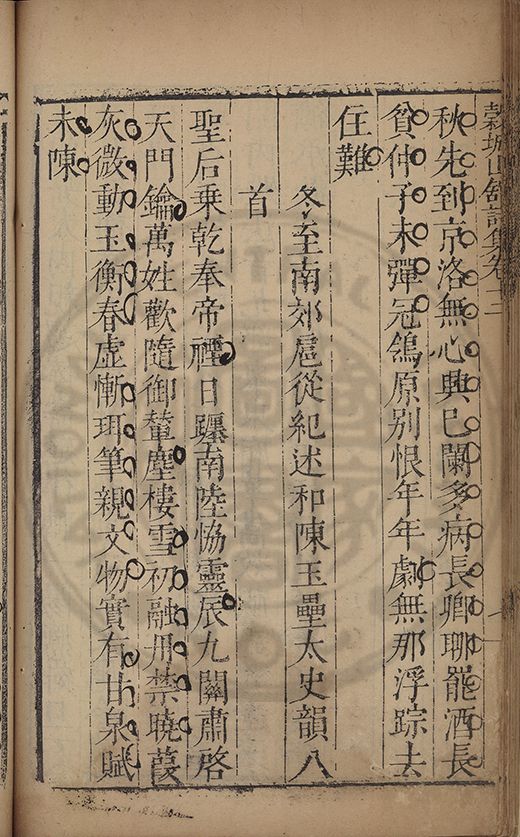 穀城山館詩集卷十二
秋先到京洛無心興已闌多病長卿聊罷酒長
貧仲子未彈冠鴒原别恨年年劇無那浮踪去
住難
冬至南郊扈從紀述和陳玉壘太史韻八
首
聖后乗乾奉帝禋日躔南陸恊靈辰九關肅啓
天門鑰萬姓歡隨御輦塵樓雪初融丹禁曉葭
灰微動玉衡春虛慚珥筆親文物實有甘泉賦
未陳